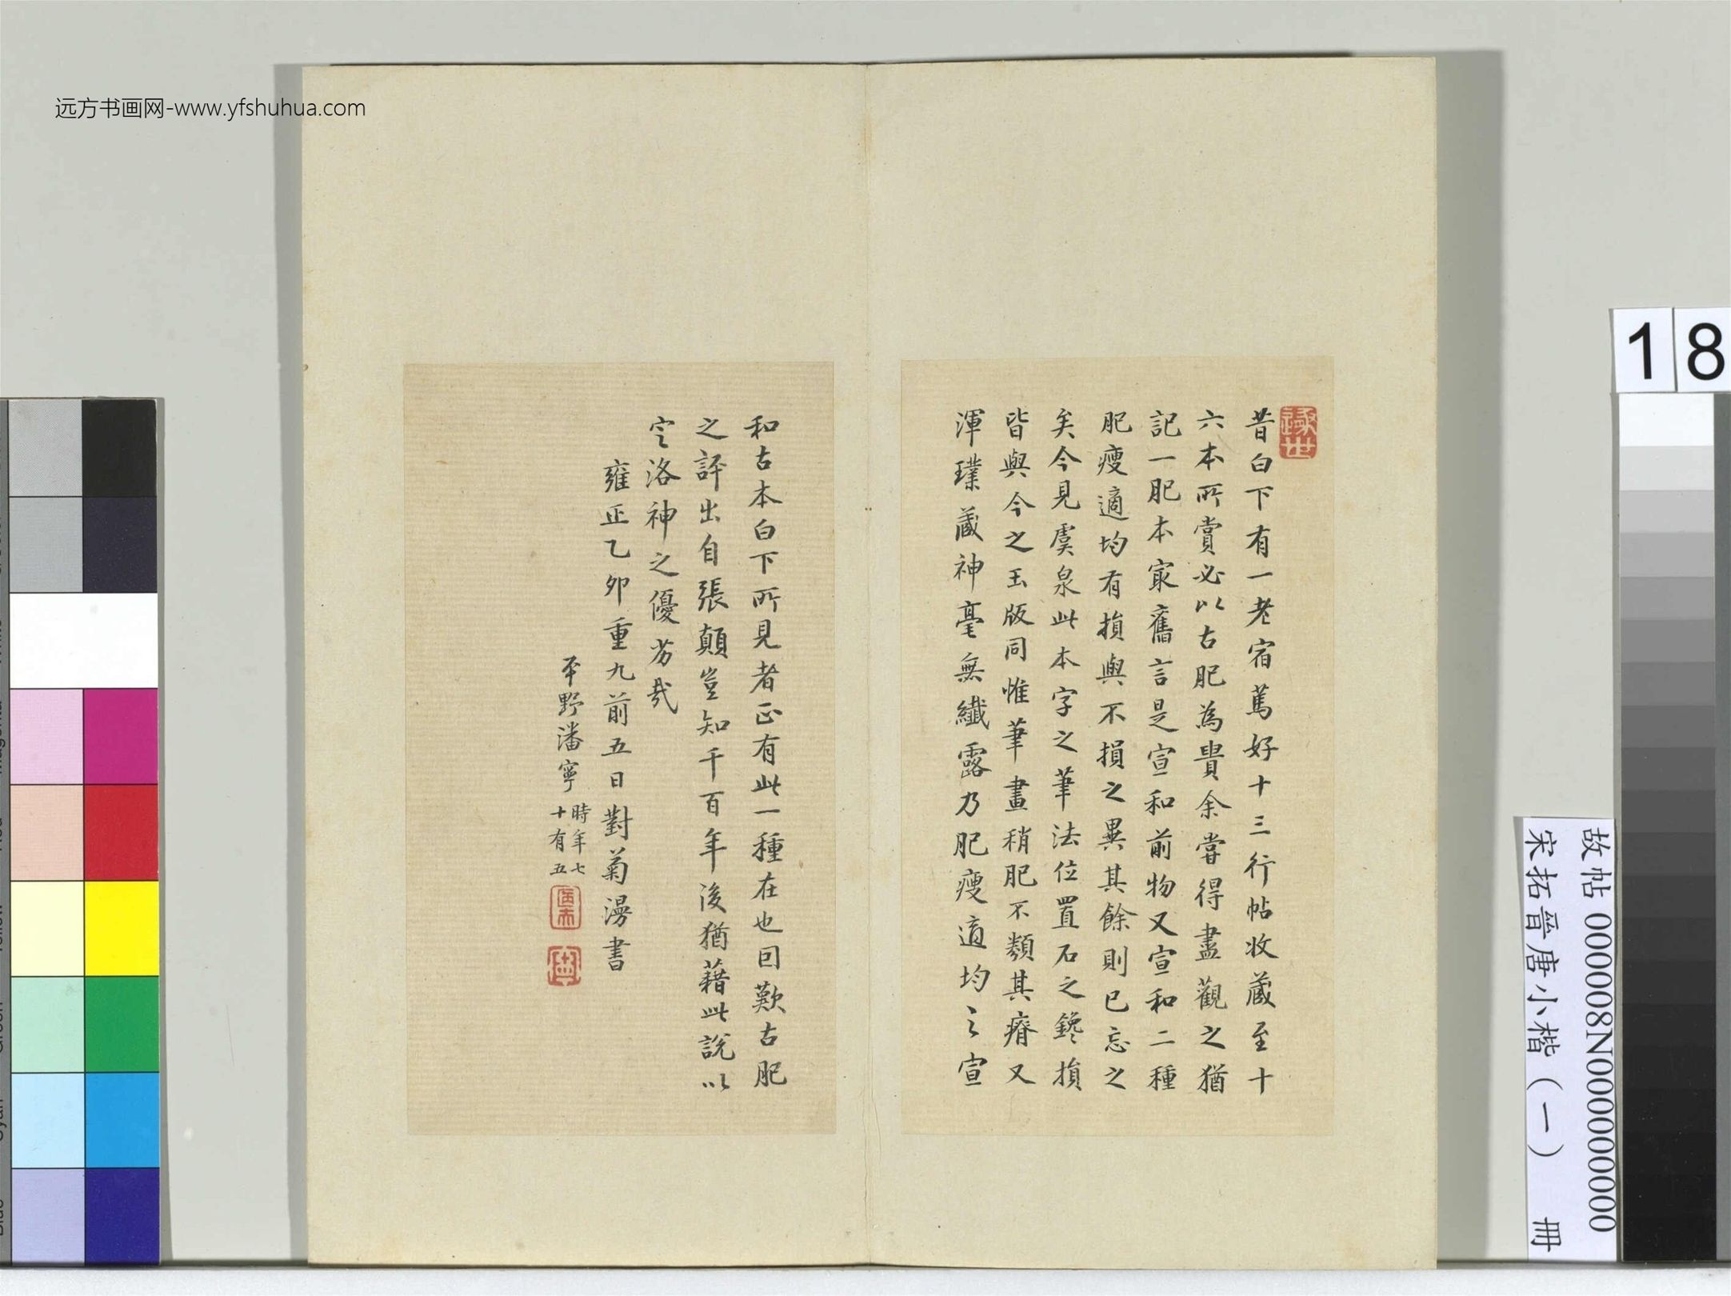 远方书画网-www.yfshuhua.com
昔白下有一老宿篤好十三行帖收藏至十
六本所賞必以古肥為貴余嘗得盡觀之猶
記一肥本寂舊言是宣和前物又宣和二種
肥瘦適均有損與不損之異其餘則已忘之
矣今見虞泉此本字之筆法位置石之鑱損
皆與今之玉版同惟筆畫稍肥不類其瘠又
渾璞蔵神毫無纖露乃肥瘦適均之宣
和古本白下所見者正有此一種在也回歎古肥
之評出自張顛豈知千百年後猶藉此說以
定洛神之優劣哉
雍正乙卯重九前五日對菊漫書
平野潘寧
時年七
十有五
18
故帖 000008N000000000
宋拓晉唐小楷(一) 冊